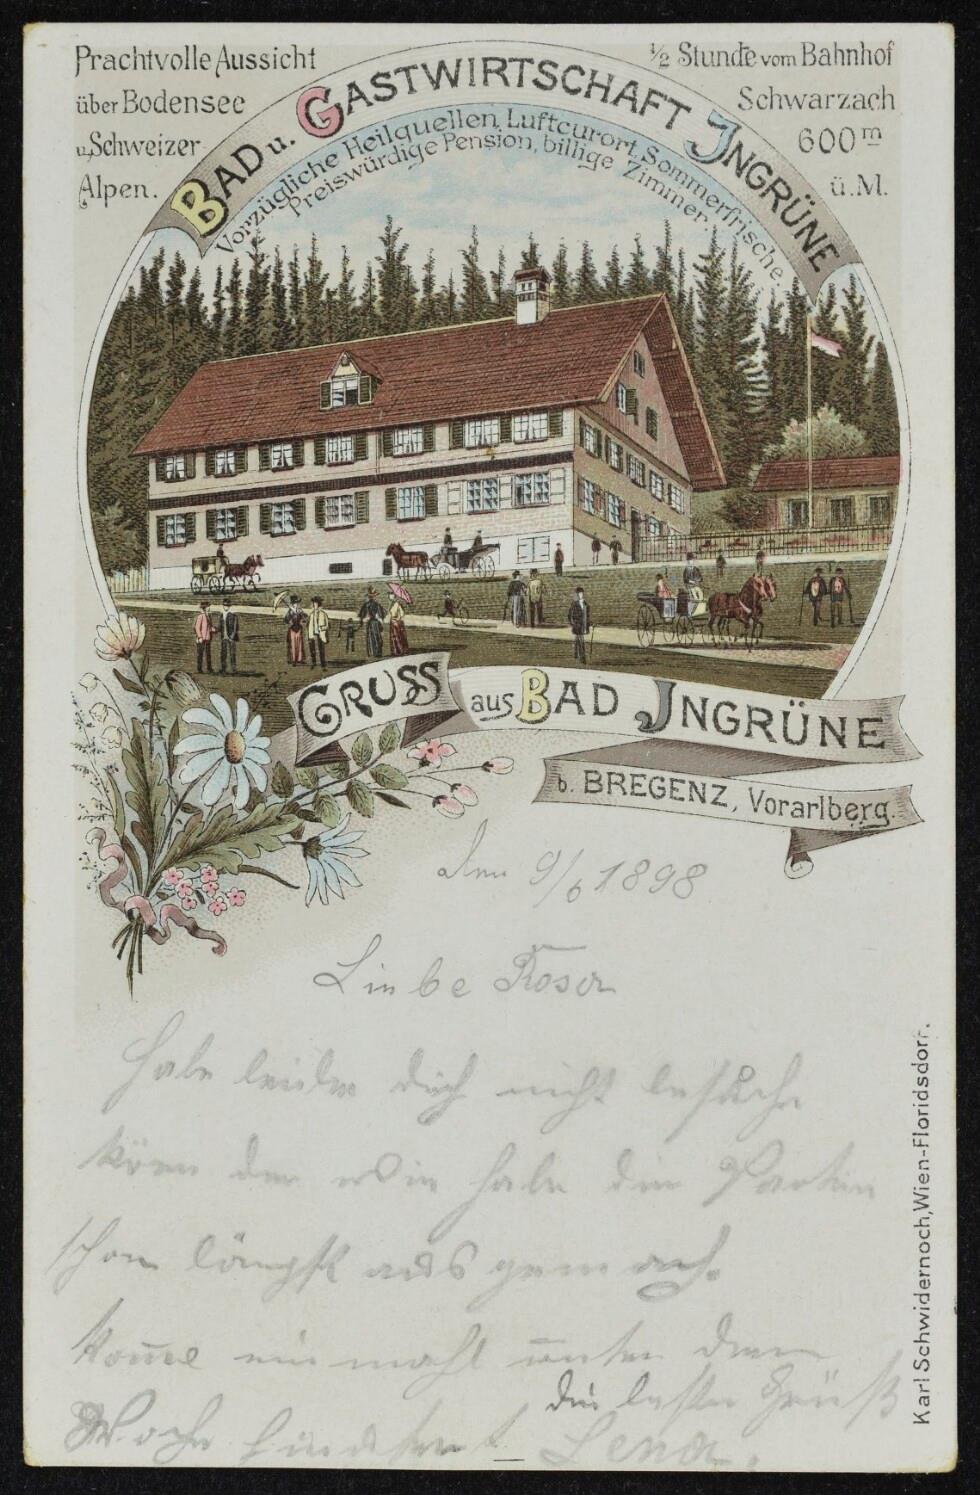 Prachtvolle Aussicht
über Bodensee
u. Schweizer
Alpen.
½ Stunde vom Bahnhof
Schwarzach
600 m
ü. M.
BAD u. GASTWIRTSCHAFT JNGRÜNE
Vorzügliche Heilquellen, Luftcurort, Sommerfrische.
Preiswürdige Pension, billige Zimmer.
GRUSS aus BAD JNGRÜNE
b. BREGENZ, Vorarlberg.
den 9/6 1898
Liebe Roser
Habe leider dich nicht besuche
könn den wir habe die Partie
schon längst aus gemach.
Kome ein mahl unter dein
Woche
die beste Grüß
Lena.
Karl Schwidernoch, Wien-Floridsdorf.